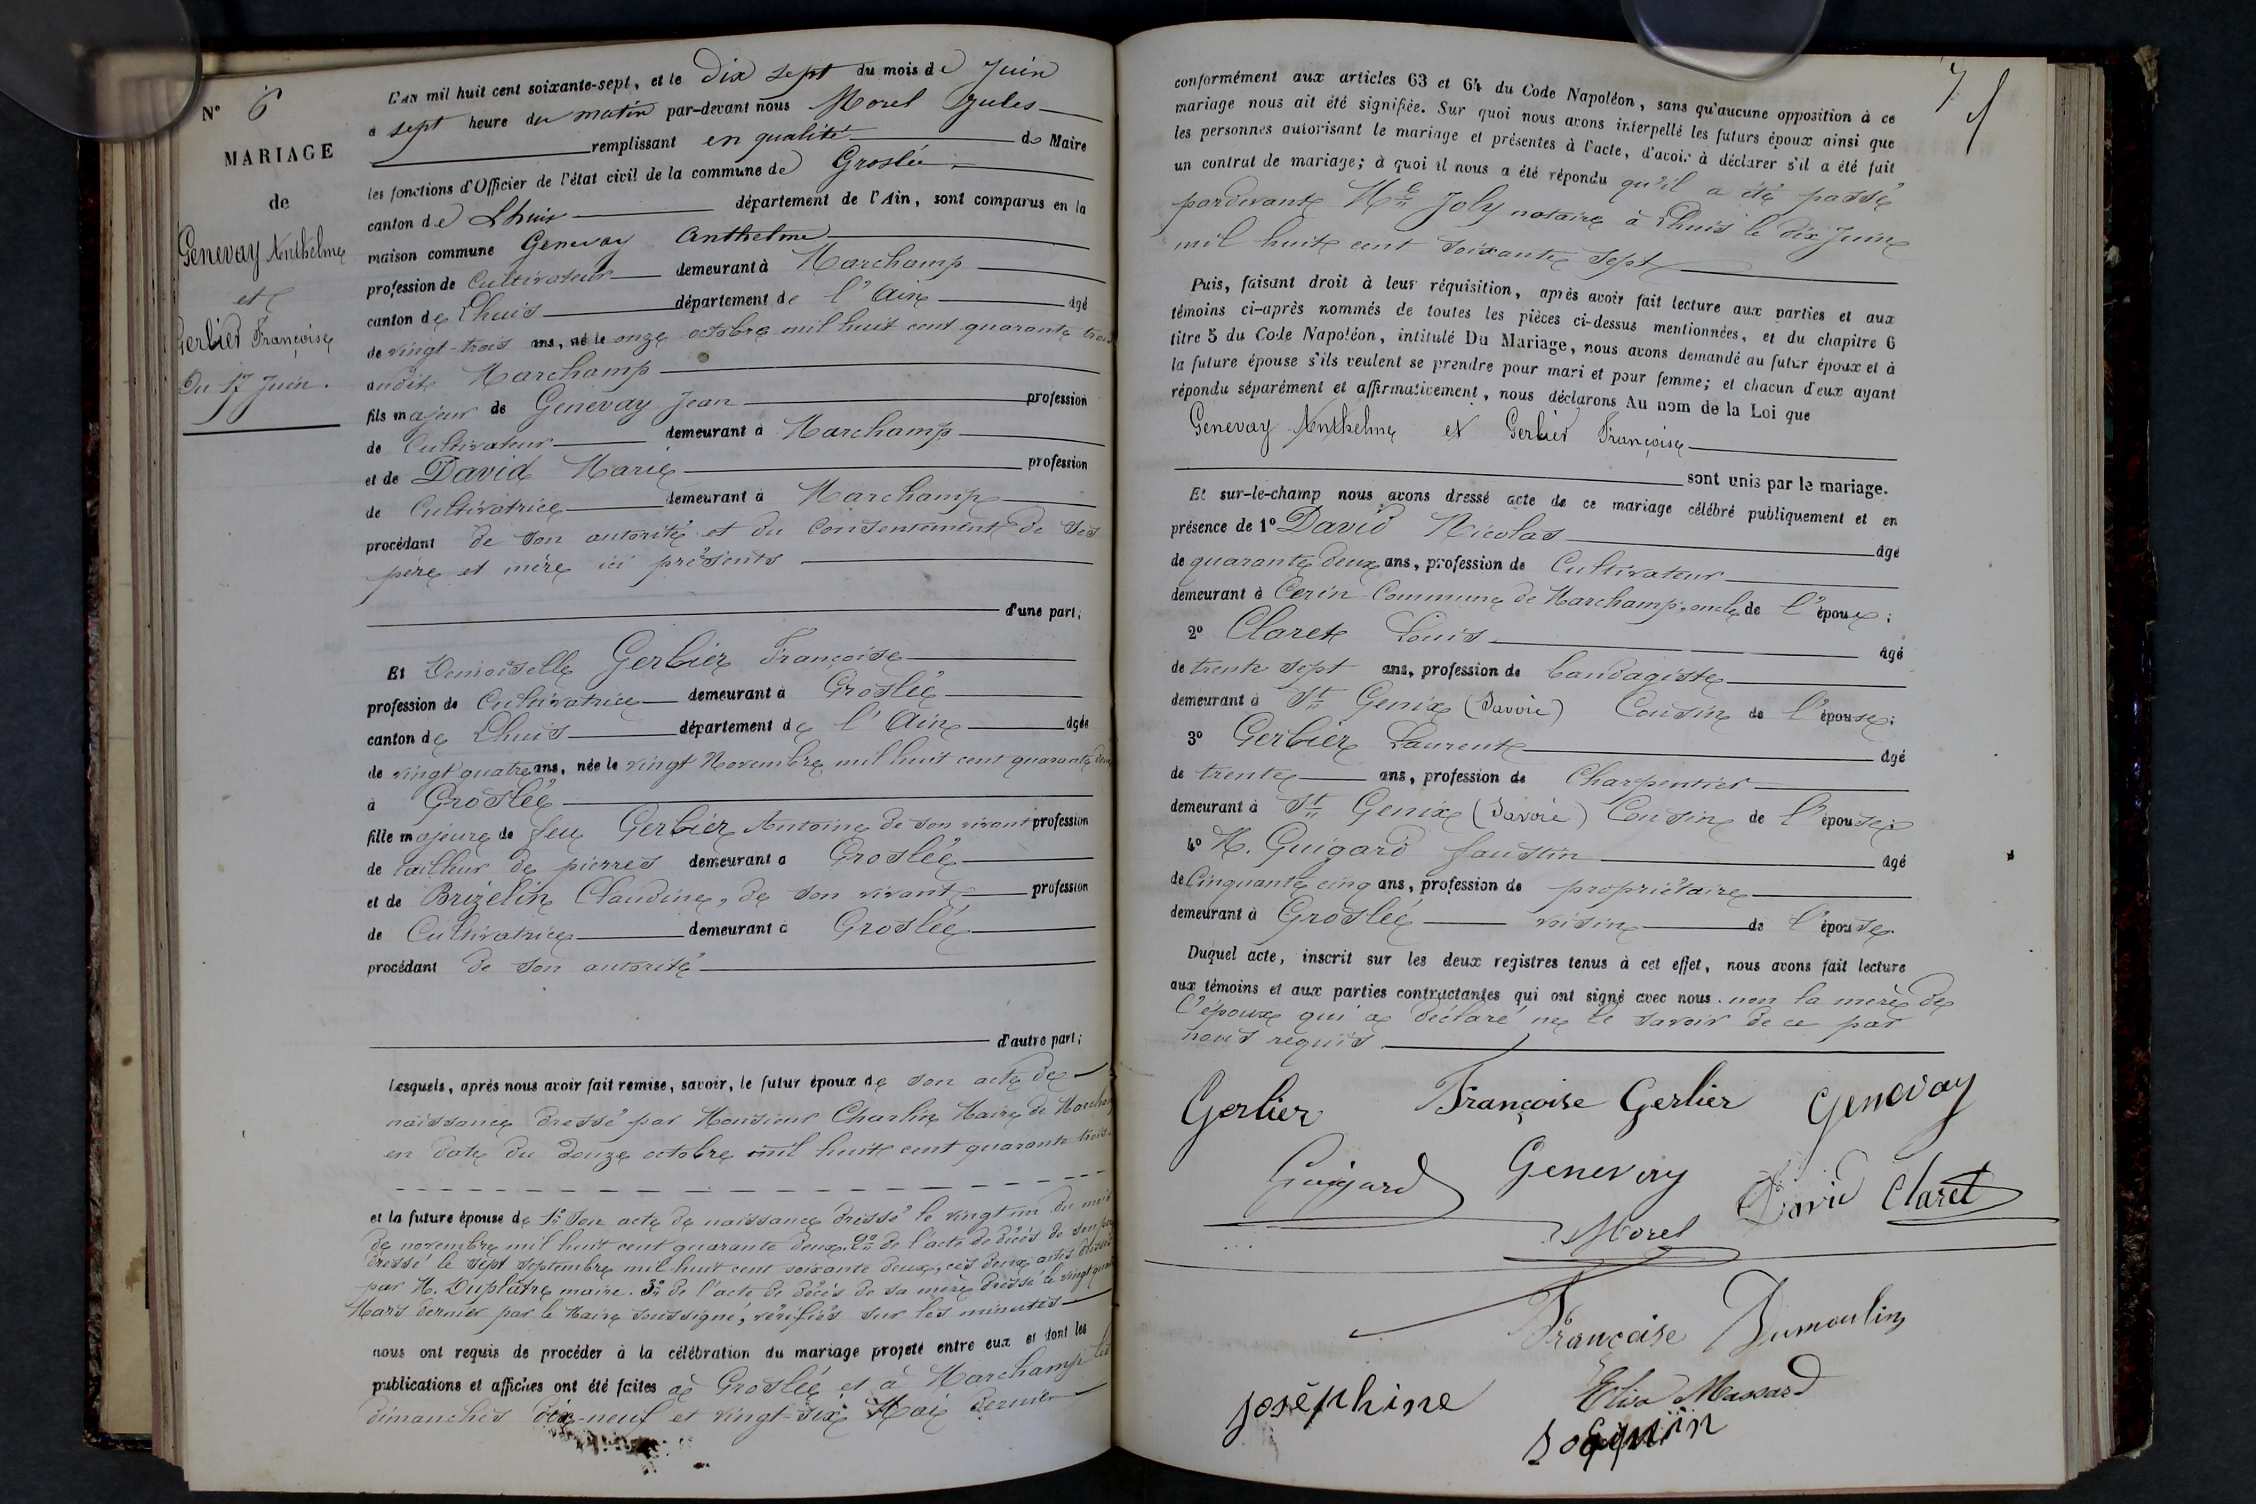 N° 6
MARIAGE
de
Genevay Anthelme
et
Gerlier Françoise
Du 17 Juin.
L'AN mil huit cent soixante-sept, et le Dix sept du mois de Juin
à sept heure du matin par-devant nous Morel Jules
remplissant en qualité de Maire
les fonctions d'Officier de l'état civil de la commune de Groslée
canton de Lhuis département de l'Ain, sont comparus en la
maison commune Genevay Anthelme
profession de Cultivateur demeurant à Marchamp
canton de Lhuis département de l'Ain âgé
de vingt-trois ans, né le onze octobre mil huit cent quarante trois
audit Marchamp
fils majeur de Genevay Jean profession
de Cultivateur demeurant à Marchamp
et de David Marie profession
de Cultivatrice demeurant à Marchamp
procédant de son autorité et du consentement de ses
père et mère ici présents
d'une part;
Et Demoiselle Gerlier Françoise
profession de Cultivatrice demeurant à Groslée
canton de Lhuis département de l'Ain âgée
de vingt quatre ans, née le vingt Novembre mil huit cent quarante deux
à Groslée
fille majeure de feu Gerlier Antoine de son vivant profession
de tailleur de pierres demeurant à Groslée
et de Brizelin Claudine, de son vivant profession
de Cultivatrice demeurant à Groslée
procédant de son autorité
d'autre part;
Lesquels, après nous avoir fait remise, savoir, le futur époux de son acte de
naissance dressé par Monsieur Charlin Maire de Marchamp
en date du douze octobre mil huit cent quarante trois.
et la future épouse de 1° son acte de naissance dressé le vingt un du mois
de novembre mil huit cent quarante deux. 2° de l'acte de décès de son père
dressé le sept septembre mil huit cent soixante deux, ces deux actes dressés
par M. Duplâtre maire. 3° de l'acte de décès de sa mère dressé le vingt quatre
Mars dernier par le Maire soussigné, vérifiés sur les minutes
nous ont requis de procéder à la célébration du mariage projeté entre eux et dont les
publications et affiches ont été faites à Groslée et à Marchamp les
dimanches dix-neuf et vingt-six Mai dernier
7
conformément aux articles 63 et 64 du Code Napoléon, sans qu'aucune opposition à ce
mariage nous ait été signifiée. Sur quoi nous avons interpellé les futurs époux ainsi que
les personnes autorisant le mariage et présentes à l'acte, d'avoir à déclarer s'il a été fait
un contrat de mariage; à quoi il nous a été répondu qu'il a été passé
pardevant Me Joly notaire à Lhuis le dix Juin
mil huit cent soixante sept
Puis, faisant droit à leur réquisition, après avoir fait lecture aux parties et aux
témoins ci-après nommés de toutes les pièces ci-dessus mentionnées, et du chapitre 6
titre 5 du Code Napoléon, intitulé Du Mariage, nous avons demandé au futur époux et à
la future épouse s'ils veulent se prendre pour mari et pour femme; et chacun d'eux ayant
répondu séparément et affirmativement, nous déclarons Au nom de la Loi que
Genevay Anthelme et Gerlier Françoise
sont unis par le mariage.
Et sur-le-champ nous avons dressé acte de ce mariage célébré publiquement et en
présence de 1° David Nicolas âgé
de quarante deux ans, profession de Cultivateur
demeurant à Cerin Commune de Marchamp, oncle de l'époux;
2° Claret Louis âgé
de trente sept ans, profession de bandagiste
demeurant à St Genix (Savoie) Cousin de l'épouse;
3° Gerlier Laurent âgé
de trente ans, profession de Charpentier
demeurant à St Genix (Savoie) Cousin de l'épouse;
4° M. Guigard faustin âgé
de Cinquante cinq ans, profession de propriétaire
demeurant à Groslée voisin de l'épouse.
Duquel acte, inscrit sur les deux registres tenus à cet effet, nous avons fait lecture
aux témoins et aux parties contractantes qui ont signé avec nous. non la mère de
l'époux qui a déclaré ne le savoir de ce par
nous requis.
Gerlier Françoise Gerlier Genevay
Guigard Genevay David Claret
Morel
Françoise Dumoulin
Joséphine Elisa Massard
Soquin